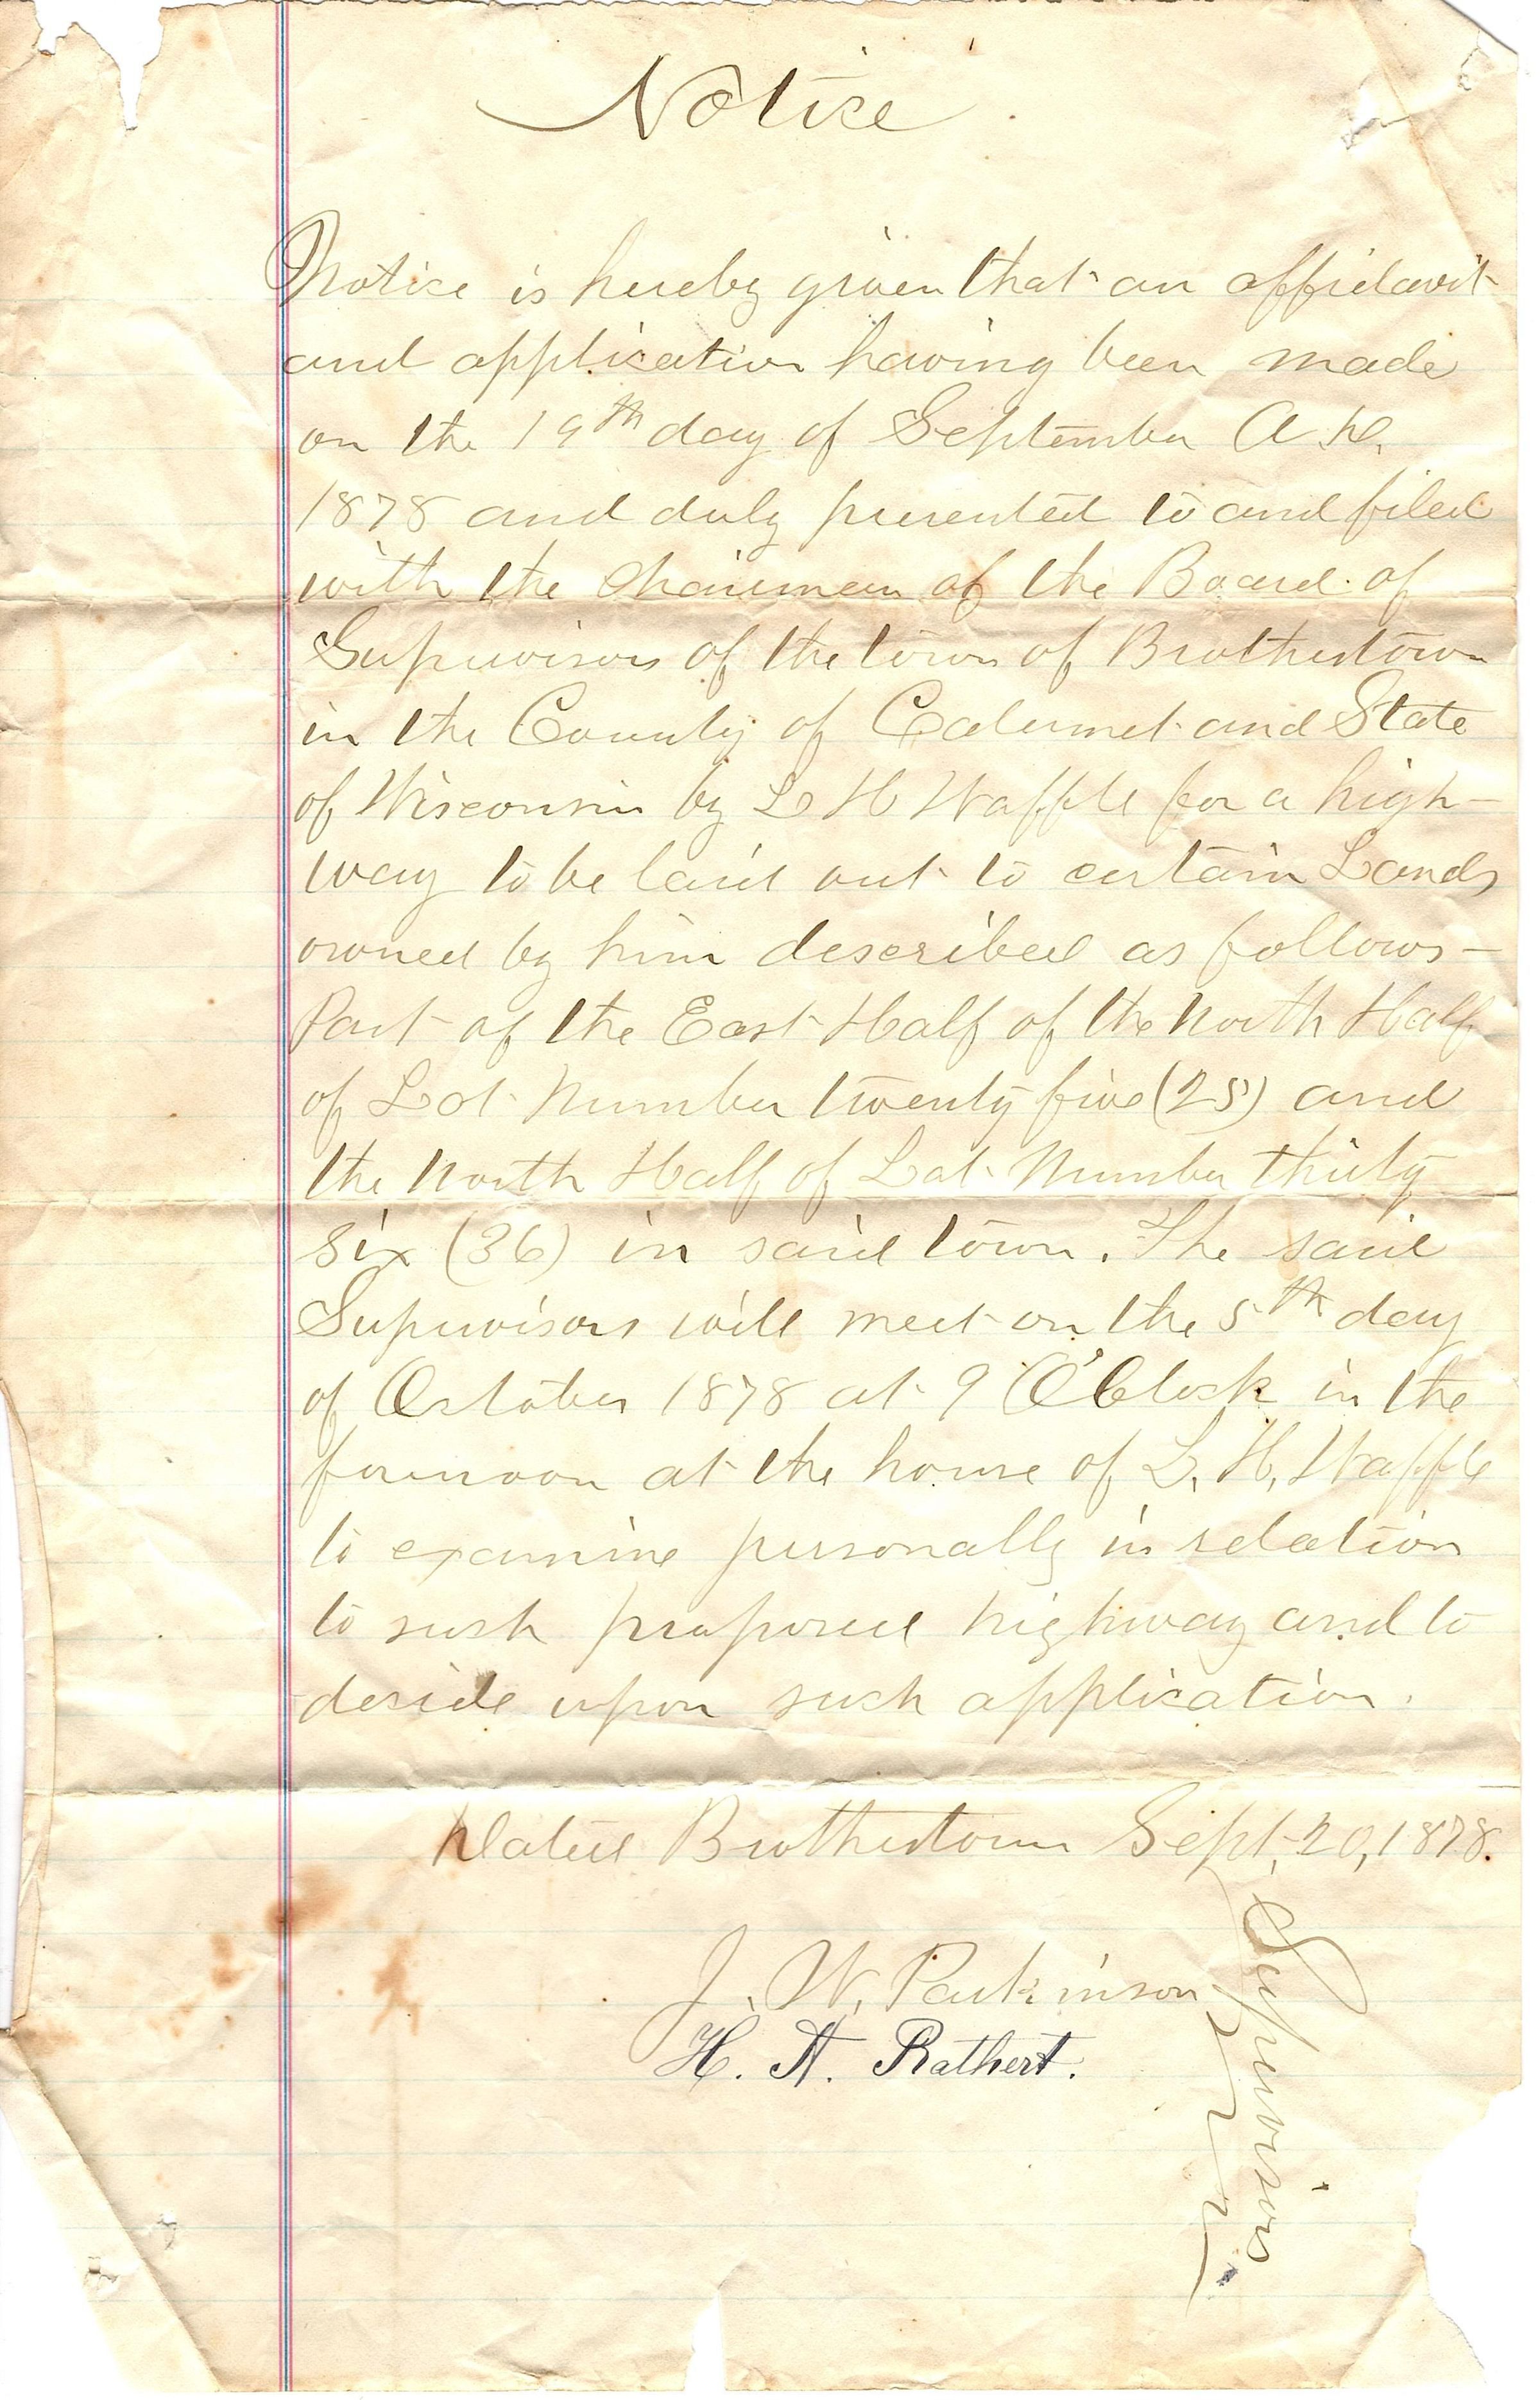 Notice.
Notice is hereby given that an affidavit
and application having been made
on the 19th day of September A.D.
1878 and duly presented to and filed
with the Chairman of the Board of
Supervisors of the town of Brothertown
in the County of Calumet and State
of Wisconsin by L H Waffle for a high-
way to be laid out to certain Lands
owned by him described as follows -
Part of the East Half of the North Half
of Lot Number twenty five (25) and
the North Half of Lot Number thirty
six (36) in said town. The said
Supervisors will meet on the 5th day
of October 1878 at 9 O'Clock in the
forenoon at the house of L. H. Waffle
to examine personally in relation
to such proposed highway and to
decide upon such application.
Dated Brothertown Sept. 20, 1878.
J. W. Parkinson
H. A. Rathert.
Supervisors